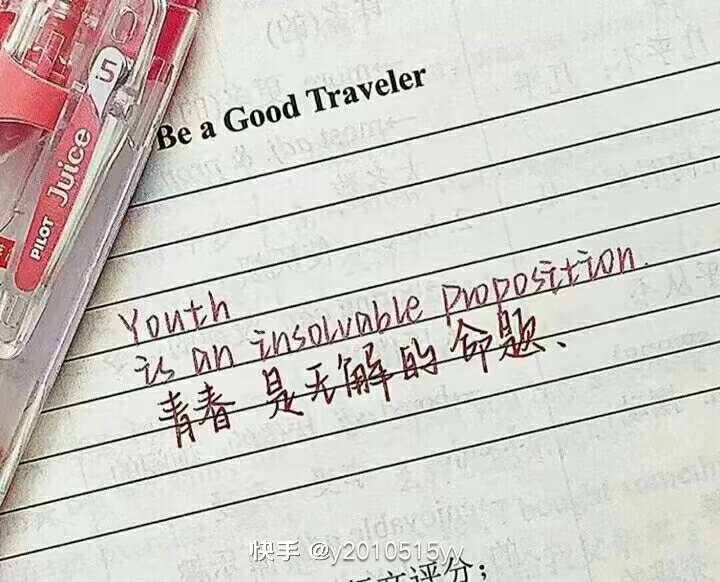 Be a Good Traveler
5
PILOT Juice
Youth
is an insolvable proposition.
青春是无解的命题、
快手 @y2010515yy
文评分：